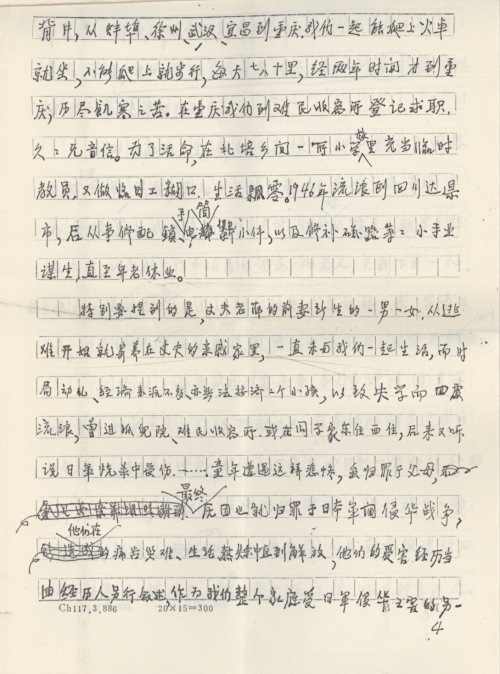 背井，从蚌埠、徐州、武汉、宜昌到重庆。我们一起能爬上火车
就坐，不能爬上就步行，每天七八十里，经两年时间才到重
庆，历尽饥寒之苦。在重庆我们到难民收容所登记求职，
久久无音信。为了活命，在北培乡间一所小学校里充当临时
教员，又做临时工糊口，生活飘零。1946年流浪到四川达县
市，后从事修配锁、手电筒小件，以及修补搪瓷等等小手业
谋生，直至年老休业。
特别要提到的是，丈夫名下的前妻新生的一男一女，从逃
难开始就寄养在丈夫的亲戚家里，一直未与我们一起生活，而时
局动乱、经济来源不多亦无法接济二个小孩，以致失学而四处
流浪，曾进孤儿院、难民收容所，或在同学家东住西住，后来又听
说日军轰炸中受伤……童年遭遇这样悲惨，虽归罪于父母，而
最终原因也就归罪于日本军阀侵华战争，
他们在的痛苦灾难、生活熬煎中直到解放，他们的受害经历当
由经历人另行叙述作为我们整个家庭受日军侵华之害的另一
Ch117.3.886 20×15=300
4